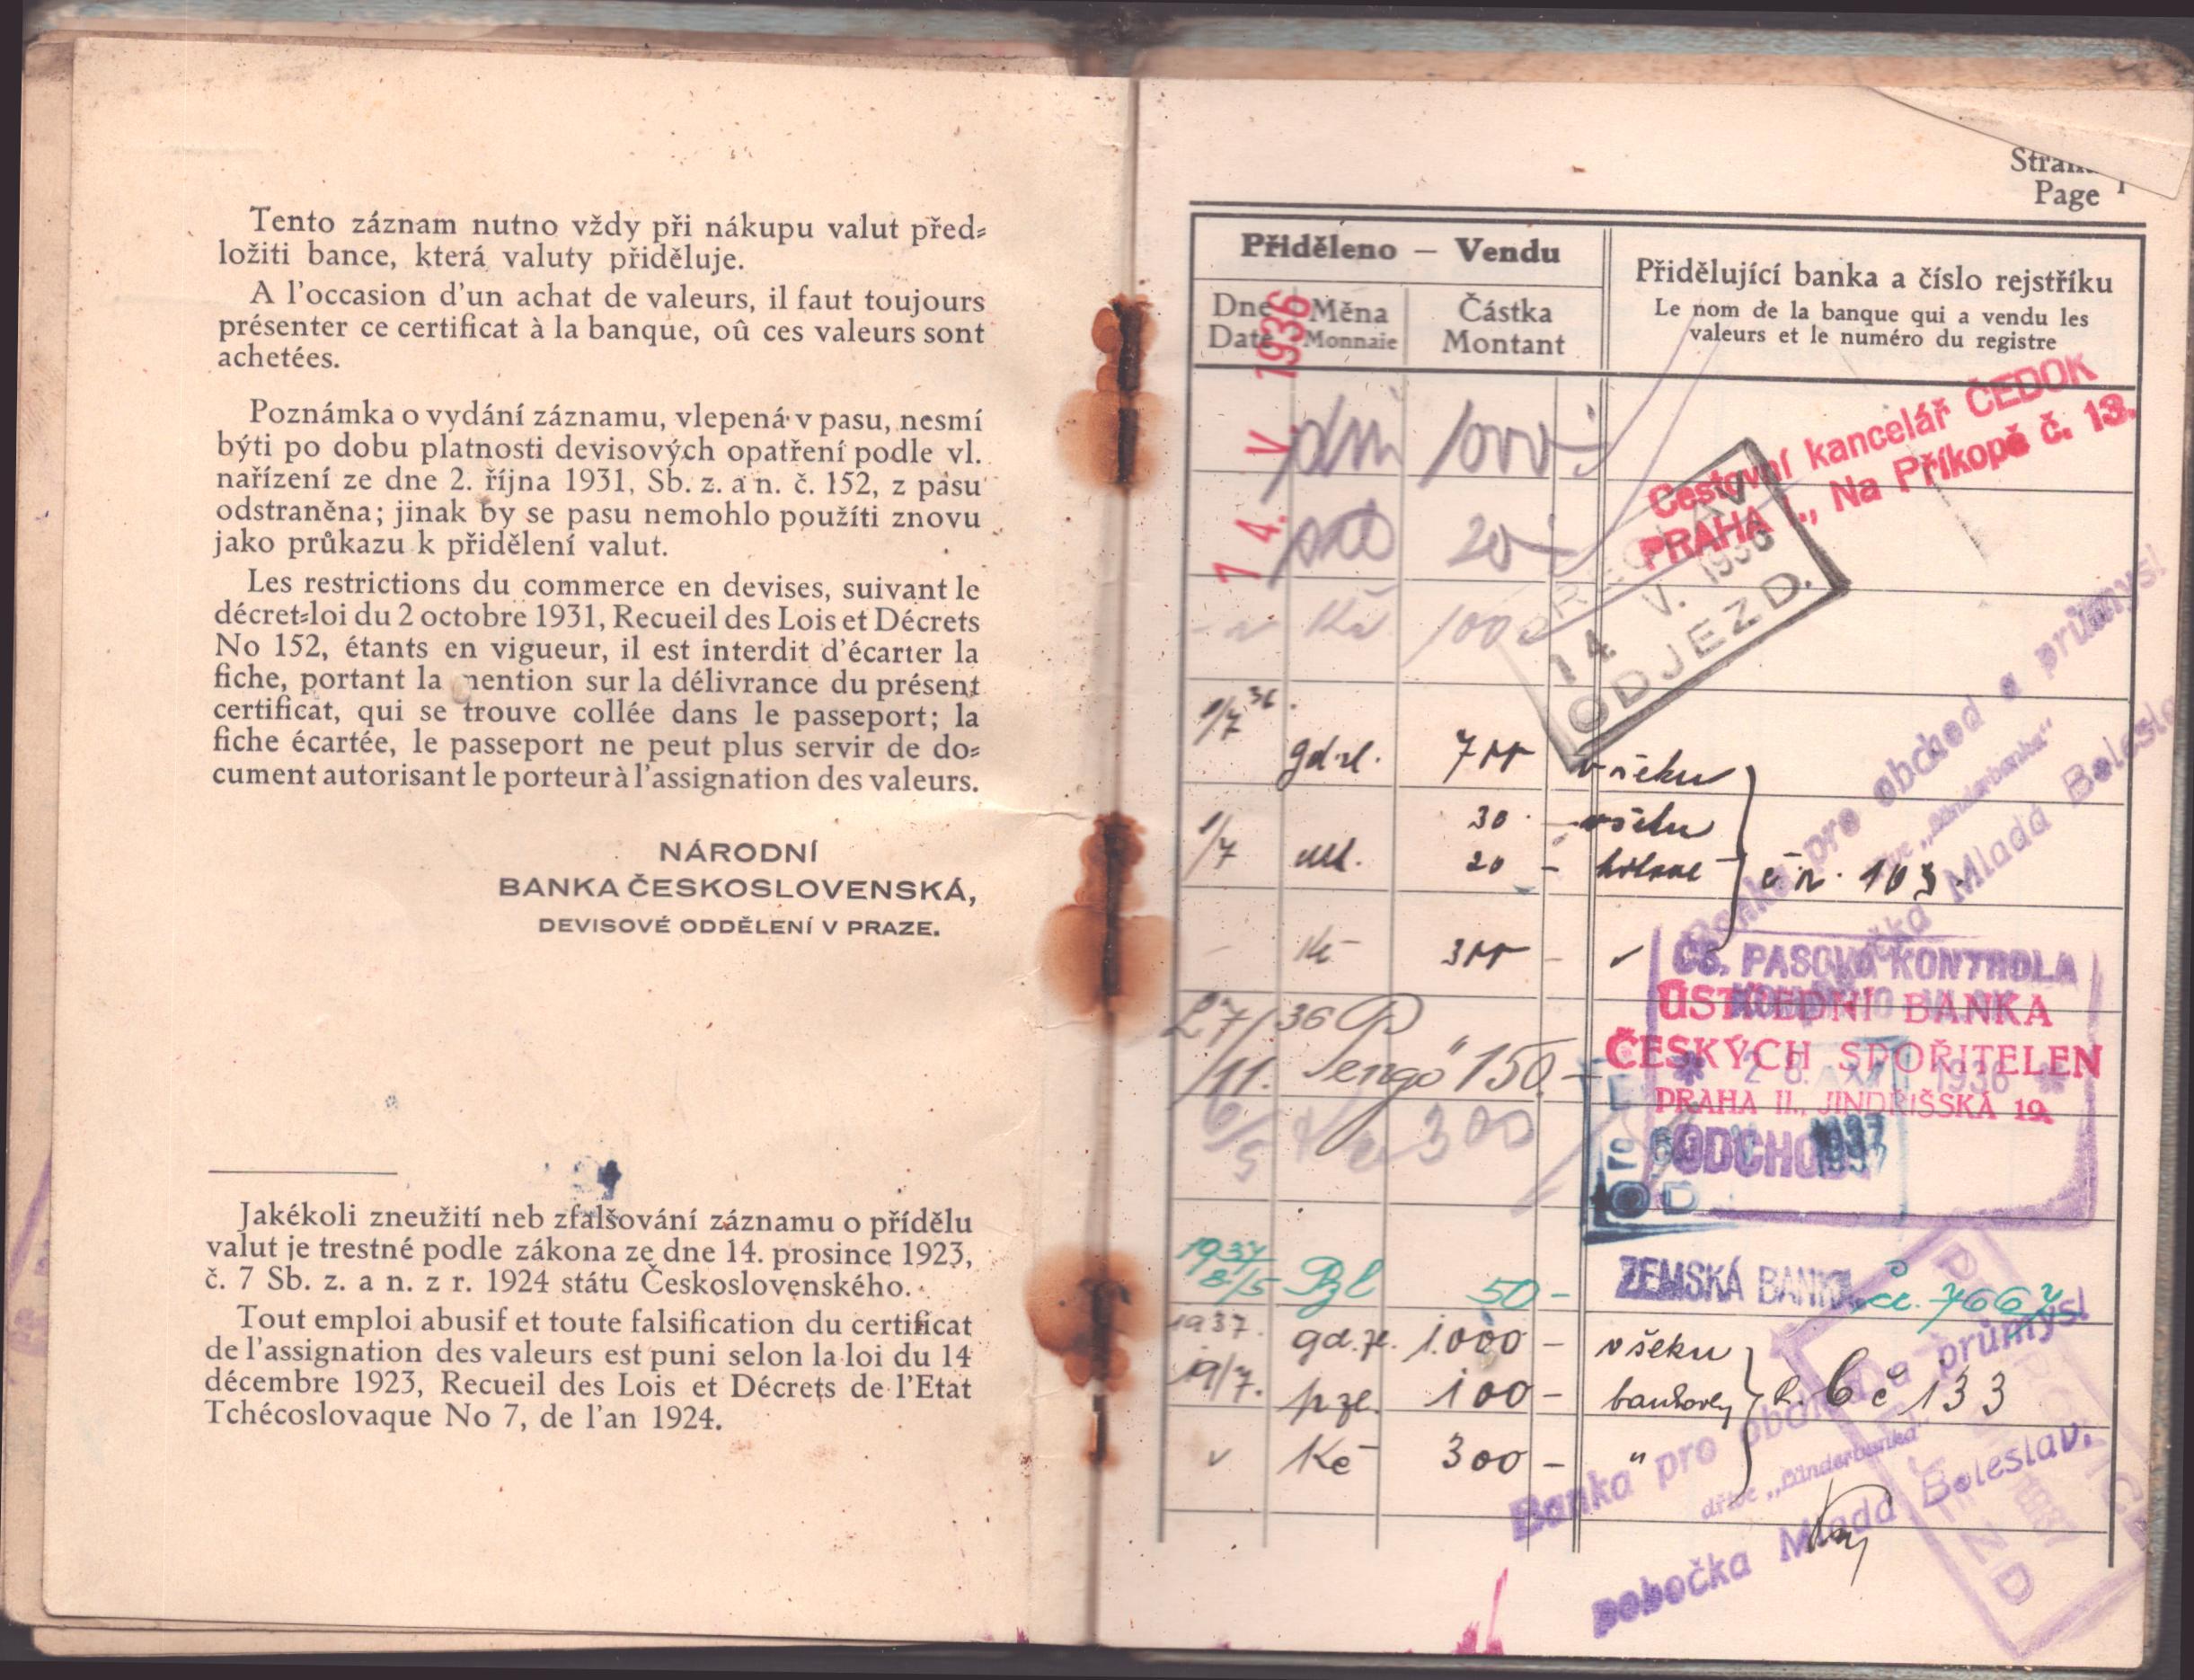 Tento záznam nutno vždy při nákupu valut před=
ložiti bance, která valuty přiděluje.
A l'occasion d'un achat de valeurs, il faut toujours
présenter ce certificat à la banque, oû ces valeurs sont
achetées.
Poznámka o vydání záznamu, vlepená v pasu, nesmí
býti po dobu platnosti devisových opatření podle vl.
nařízení ze dne 2. října 1931, Sb. z. a n. č. 152, z pasu
odstraněna; jinak by se pasu nemohlo použíti znovu
jako průkazu k přidělení valut.
Les restrictions du commerce en devises, suivant le
décret=loi du 2 octobre 1931, Recueil des Lois et Décrets
No 152, étants en vigueur, il est interdit d'écarter la
fiche, portant la mention sur la délivrance du présent
certificat, qui se trouve collée dans le passeport; la
fiche écartée, le passeport ne peut plus servir de do=
cument autorisant le porteur à l'assignation des valeurs.
NÁRODNÍ
BANKA ČESKOSLOVENSKÁ,
DEVISOVÉ ODDĚLENÍ V PRAZE.
Jakékoli zneužití neb zfalšování záznamu o přídělu
valut je trestné podle zákona ze dne 14. prosince 1923,
č. 7 Sb. z. a n. z r. 1924 státu Československého.
Tout emploi abusif et toute falsification du certificat
de l'assignation des valeurs est puni selon la loi du 14
décembre 1923, Recueil des Lois et Décrets de l'Etat
Tchécoslovaque No 7, de l'an 1924.
Page
Přiděleno – Vendu
Přidělující banka a číslo rejstříku
Le nom de la banque qui a vendu les
valeurs et le numéro du registre
Dne Měna Částka
Date Monnaie Montant
1 4. V. 1936
Cestovní kancelář ČEDOK
PRAHA I., Na Příkopě č. 13.
20
Kč 100
14 V. 1936
ODJEZD.
1/7 36.
gd.zl. v šeku
1/7 30 v šeku
20 –
č. r. 103
Kč
Banka pro obchod a průmysl
dříve „Länderbanka"
pobočka Mladá Boleslav
ČS. PASOVÁ KONTROLA
ÚSTŘEDNÍ BANKA
ČESKÝCH SPOŘITELEN
28. 1936
PRAHA II., JINDŘIŠSKÁ 19.
ODCHOD
1937
27/11. 36 Pengö 150.–
6/5 Kč 300
1937
8/5 Pzl 50 – ZEMSKÁ BANKA
1937. gd.zl. 1.000 – v šeku
19/7. pzl. 100 – bankovky č 133
Kč 300 – "
Banka pro obchod a průmysl
dříve „Länderbanka"
pobočka Mladá Boleslav.